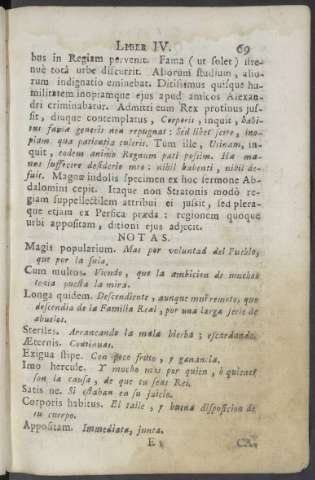 LIBER IV. 69
bus in Regiam pervenit. Fama ( ut solet ) stre-
nuè totâ urbe discurrit. Aliorum studium, alio-
rum indignatio eminebat. Ditissimus quisque hu-
militatem inopiamque ejus apud amicos Alexan-
dri criminabatur. Admitti eum Rex protinus jus-
sit, diuque contemplatus, Corporis, inquit, habi-
tus famæ generis non repugnat: Sed libet scire, ino-
piam qua patientia tuleris. Tum ille, Utinam, in-
quit, eodem animo Regnum pati possim. Hæ ma-
nus suffecere desiderio meo: nihil habenti, nihil de-
fuit. Magnæ indolis specimen ex hoc sermone Ab-
dalomini cepit. Itaque non Stratonis modò re-
giam suppellectilem attribui ei jussit, sed plera-
que etiam ex Persica præda: regionem quoque
urbi appositam, ditioni ejus adjecit.
NOTAS.
Magis popularium. Mas por voluntad del Pueblo,
que por la suya.
Cum multos. Viendo, que la ambicion de muchos
tenia puesta la mira.
Longa quidem. Descendiente, aunque muy remoto, que
descendia de la Familia Real, por una larga serie de
abuelos.
Steriles. Arrancando la mala hierba; escardando.
Æternis. Continuas.
Exigua stipe. Con poco fruto, y ganancia.
Imo hercule. Y mucho mas por quien, ò quienes
son la causa, de que tu seas Rei.
Satis ne. Si estaban en su juicio.
Corporis habitus. El talle, y buena disposicion de
tu cuerpo.
Appositam. Immediata, junta.
E 3 CA-